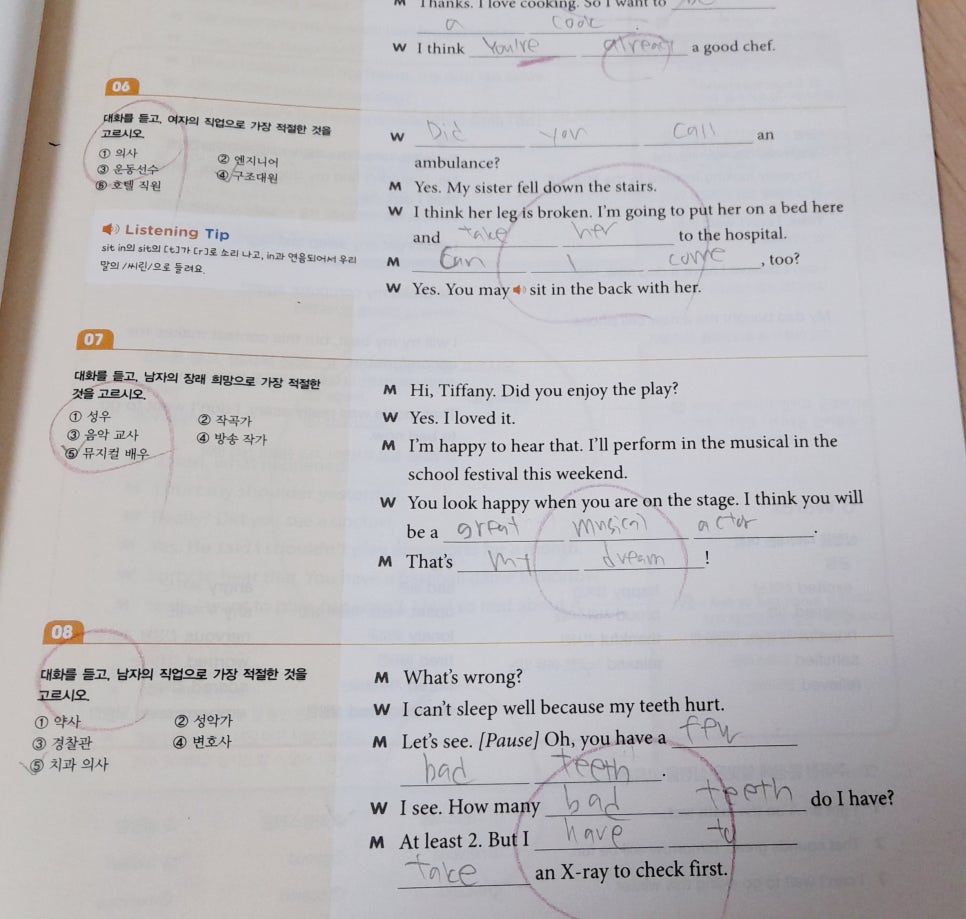 M Thanks. I love cooking. So I want to be
a cook.
W I think You're already a good chef.
06
대화를 듣고, 여자의 직업으로 가장 적절한 것을
고르시오.
① 의사 ② 엔지니어
③ 운동선수 ④ 구조대원
⑤ 호텔 직원
Listening Tip
sit in의 sit의 [t]가 [r]로 소리 나고, in과 연음되어서 우리
말의 /씨린/으로 들려요.
W Did you call an
ambulance?
M Yes. My sister fell down the stairs.
W I think her leg is broken. I'm going to put her on a bed here
and take her to the hospital.
M Can I come, too?
W Yes. You may sit in the back with her.
07
대화를 듣고, 남자의 장래 희망으로 가장 적절한
것을 고르시오.
① 성우 ② 작곡가
③ 음악 교사 ④ 방송 작가
⑤ 뮤지컬 배우
M Hi, Tiffany. Did you enjoy the play?
W Yes. I loved it.
M I'm happy to hear that. I'll perform in the musical in the
school festival this weekend.
W You look happy when you are on the stage. I think you will
be a great musical actor.
M That's my dream!
08
대화를 듣고, 남자의 직업으로 가장 적절한 것을
고르시오.
① 약사 ② 성악가
③ 경찰관 ④ 변호사
⑤ 치과 의사
M What's wrong?
W I can't sleep well because my teeth hurt.
M Let's see. [Pause] Oh, you have a few
bad teeth.
W I see. How many bad teeth do I have?
M At least 2. But I have to
take an X-ray to check first.